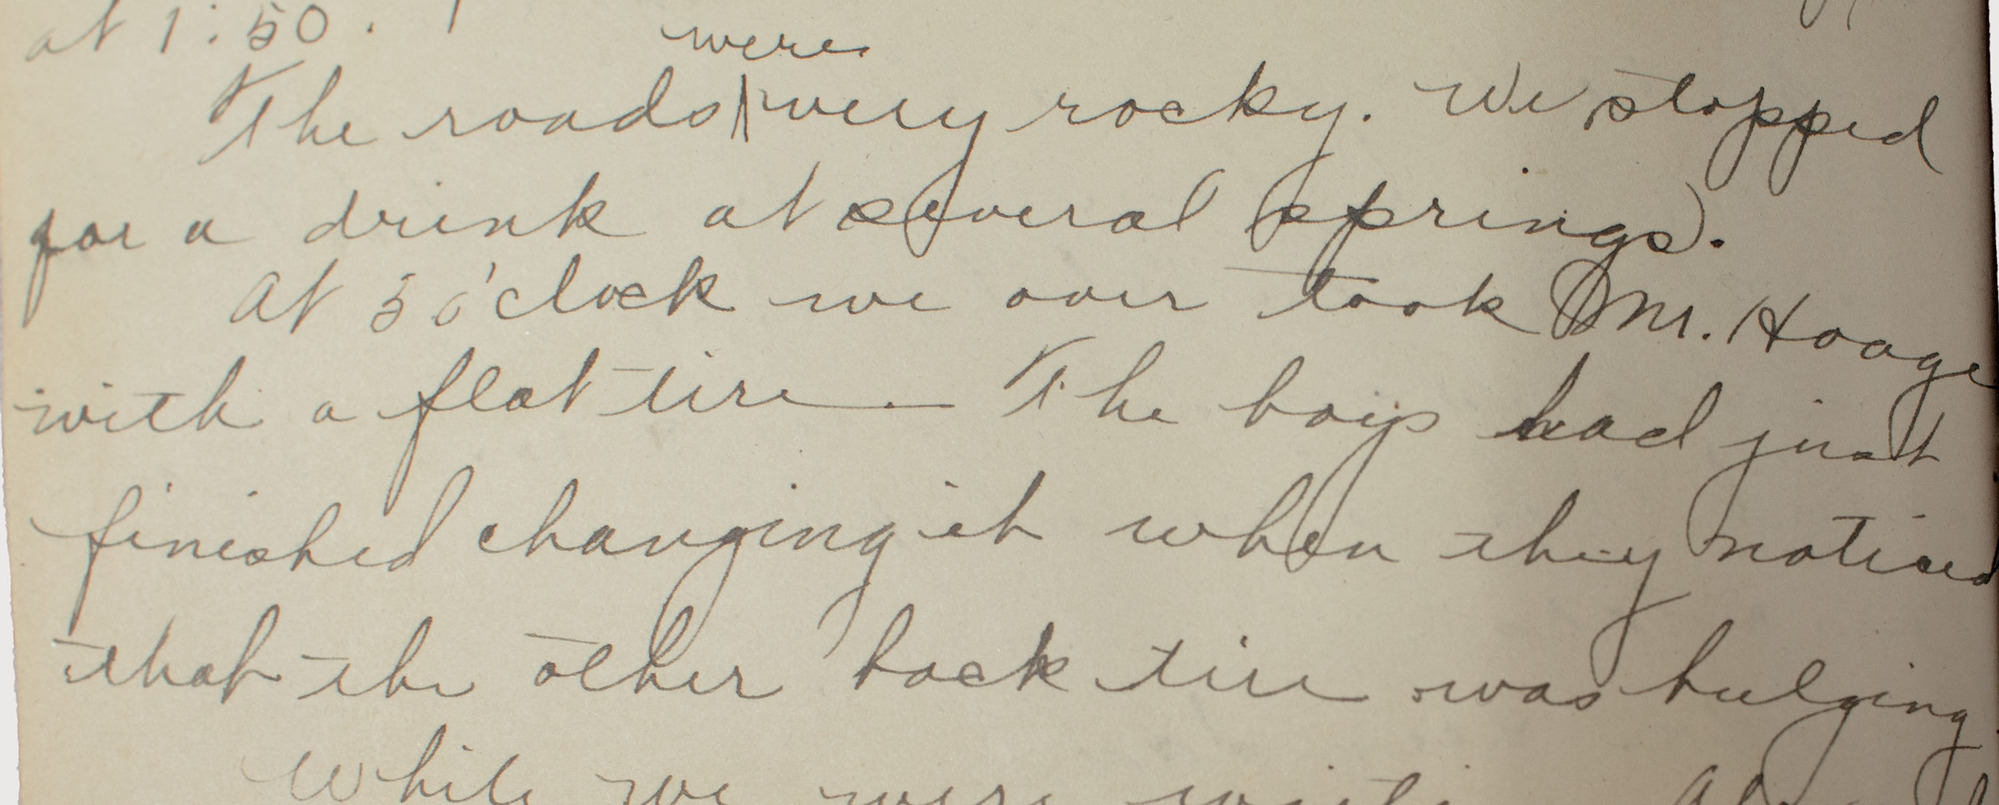 at 1:50.
were
The roads very rocky. We stopped
for a drink at several springs.
At 5 o'clock we over took Mr. Hoage
with a flat tire — The boys had just
finished changing it when they noticed
that the other back tire was bulging
While we were